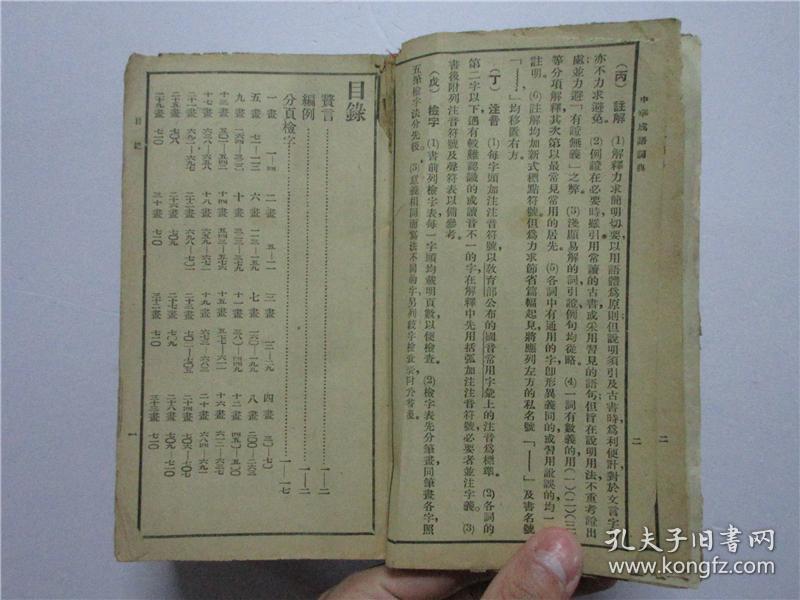 中華成語詞典
二
二
（丙）　註解　(1)解釋力求簡明切要以用語體爲原則但說明須引及古書時爲利便計對於文言字
亦不力求避免。(2)例證在必要時應引用常讀的古書或采用習見的語句但旨在說明用法不重考證出
處並力避「有證無義」之弊。(3)淺顯易解的詞引證例句均從略。(4)一詞有數義的用(一)(二)(三)
等分項解釋其次第以最常見常用的居先。(5)各詞中有通用的字卽形異義同的或習用訛誤的均一
註明。(6)註解均加新式標點符號但爲力求節省篇幅起見將應列左方的私名號「——」及書名號
「﹏﹏」均移置右方。
（丁）　注音　(1)每字頭加注注音符號以敎育部公布的國音常用字彙上的注音爲標準。(2)各詞的
第二字以下遇有較難認識的或讀音不一的字在解釋中先用括弧加注注音符號必要者並注字義。(3)
書後附列注音符號及聲符表以備參考。
（戊）　檢字　(1)書前列檢字表每一字頭均載明頁數以便檢查。(2)檢字表先分筆畫同筆畫各字照
五筆檢字法分先後。(3)意義相同而寫法不同的字另列
目錄
贅言……一—二
編例……一—二
分頁檢字……一—一七
一畫　一—四　二畫　五—一一　三畫　一二—二九　四畫　三〇—七〇
五畫　七一—一一三　六畫　一一三—一五九　七畫　一六〇—一九九　八畫　二〇〇—二六三
九畫　二六四—三一二　十畫
十三畫　十四畫　十五畫　十六畫
十七畫　十八畫　十九畫　二十畫
二十一畫　二十二畫　二十三畫　二十四畫
二十五畫　七〇八　二十六畫　七〇九　二十七畫　七〇九　二十八畫　七一〇
二十九畫　七一〇　三十畫　七一〇
目錄
一
孔夫子旧书网
www.kongfz.com